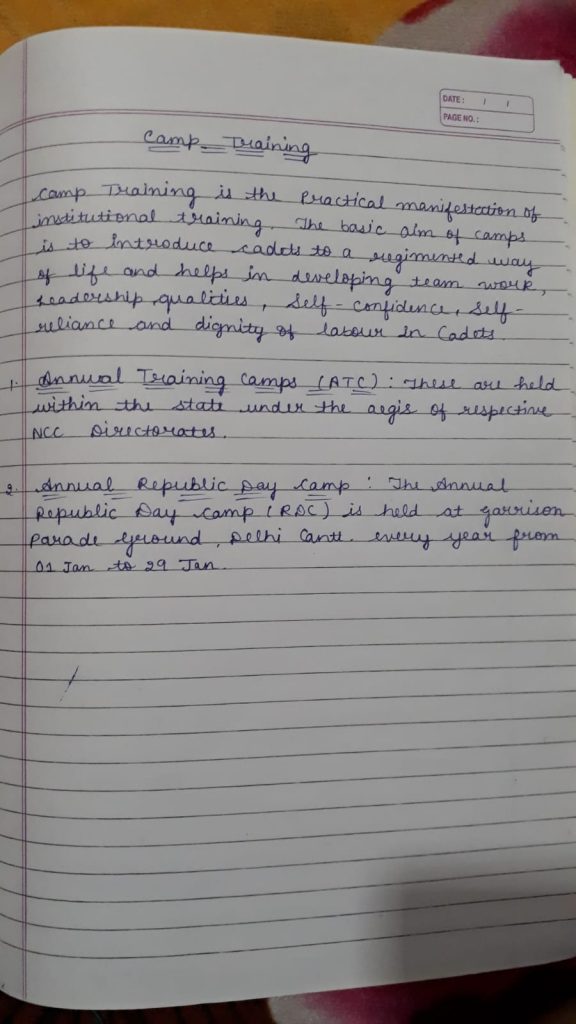 DATE: / /
PAGE NO.:
Camp Training
Camp Training is the Practical manifestation of
institutional training. The basic aim of camps
is to introduce cadets to a regimented way
of life and helps in developing team work,
Leadership qualities, Self-confidence, Self-
reliance and dignity of labour in Cadets.
1. Annual Training Camps (ATC): These are held
within the state under the aegis of respective
NCC Directorates.
2. Annual Republic Day Camp: The Annual
Republic Day Camp (RDC) is held at garrison
Parade Ground, Delhi Cantt. every year from
01 Jan to 29 Jan.